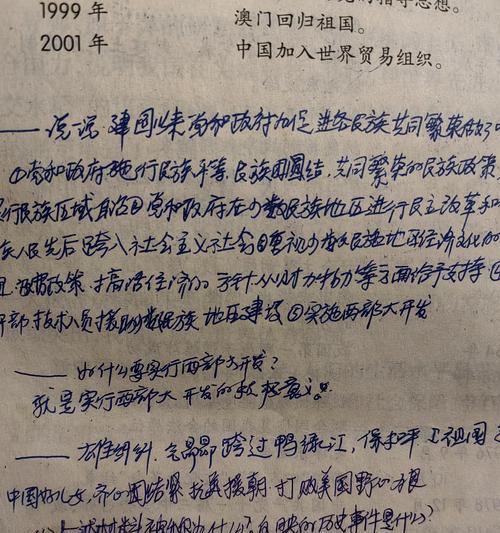 的指导思想。
1999年 澳门回归祖国。
2001年 中国加入世界贸易组织。
——说一说建国以来党和政府为促进各民族共同繁荣做了
①党和政府施行民族平等、民族团圆结、共同繁荣的民族政策,
行民族区域自治②党和政府在少数民族地区进行民主改革和
族人民先后跨入社会主义社会③重视少数民族地区经济文化的
政策, 搞活经济的方针 从财力物力等方面给予支持④
干部技术人员援助少数民族地区建设⑤实施西部大开发
——为什么要实行西部大开发?
就是实行西部大开发的积极意义。
——雄纠纠, 气昂昂 跨过鸭绿江, 保和平 卫祖国
中国好儿女, 齐心团结紧 抗美援朝, 打败美国野心狼
材料 反映的历史事件是什么?